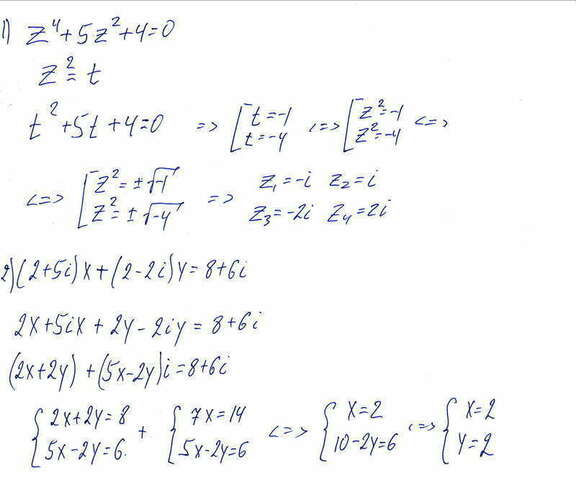 1) z⁴+5z²+4=0
z²=t
t²+5t+4=0 => [t=-1 t=-4 <=> [z²=-1 z²=-4 <=>
<=> [z²=±√-1 z²=±√-4 => z₁=-i z₂=i z₃=-2i z₄=2i
2) (2+5i)x+(2-2i)y=8+6i
2x+5ix+2y-2iy=8+6i
(2x+2y)+(5x-2y)i=8+6i
{2x+2y=8 5x-2y=6. + {7x=14 5x-2y=6 <=> {x=2 10-2y=6 <=> {x=2 y=2